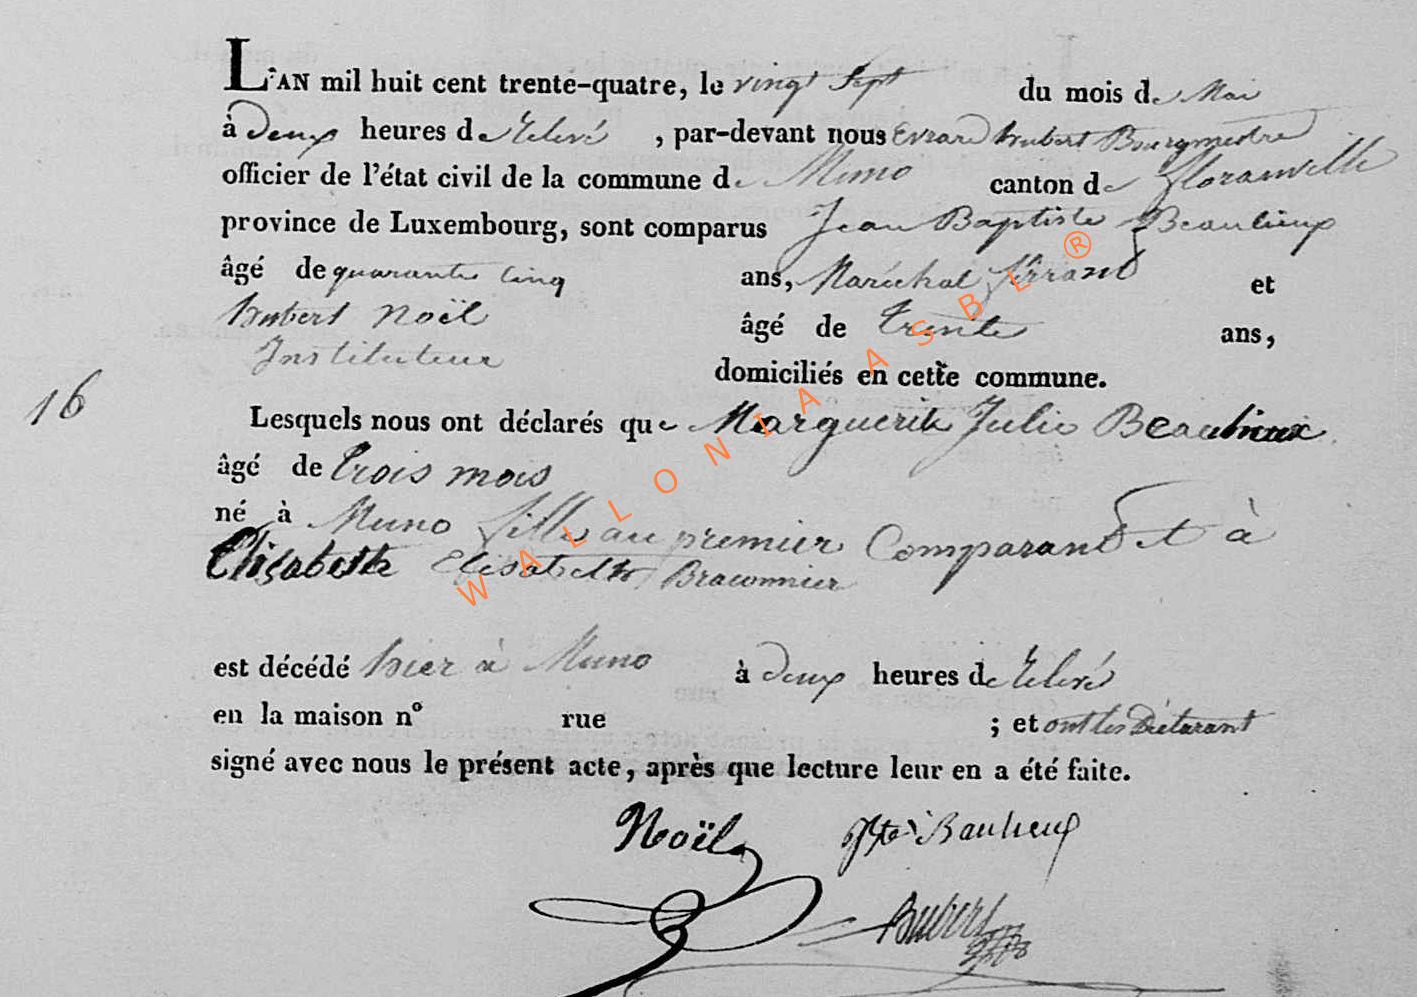 L'AN mil huit cent trente-quatre, le vingt Sept du mois de Mai
à deux heures de relevé, par-devant nous Evrard hubert Bourgmestre
officier de l'état civil de la commune de Muno canton de floranville
province de Luxembourg, sont comparus Jean Baptiste Beaulieux
âgé de quarante cinq ans, Maréchal férrant et
hubert Noël âgé de trente ans,
Instituteur domiciliés en cette commune.
16
Lesquels nous ont déclarés que Marguerite Julie Beaulieux
âgé de trois mois
né à Muno fille au premier Comparant et à
Elisabethe Elisabethe Braconnier
est décédé hier à Muno à deux heures de relevé
en la maison n° rue ; et ont les Déclarant
signé avec nous le présent acte, après que lecture leur en a été faite.
Noël Bte Baulieux
WALLONIA ASBL ®